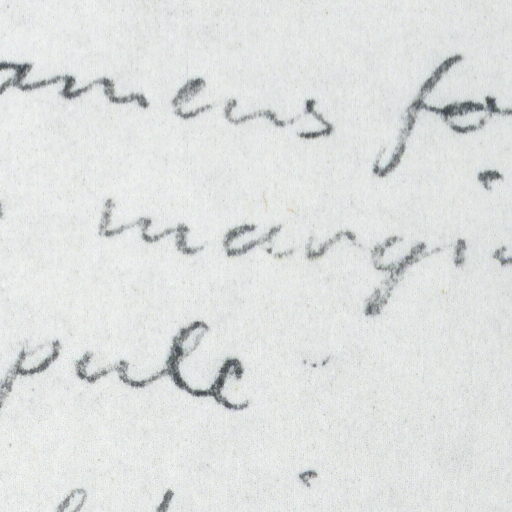 amens fo
margi
pulc